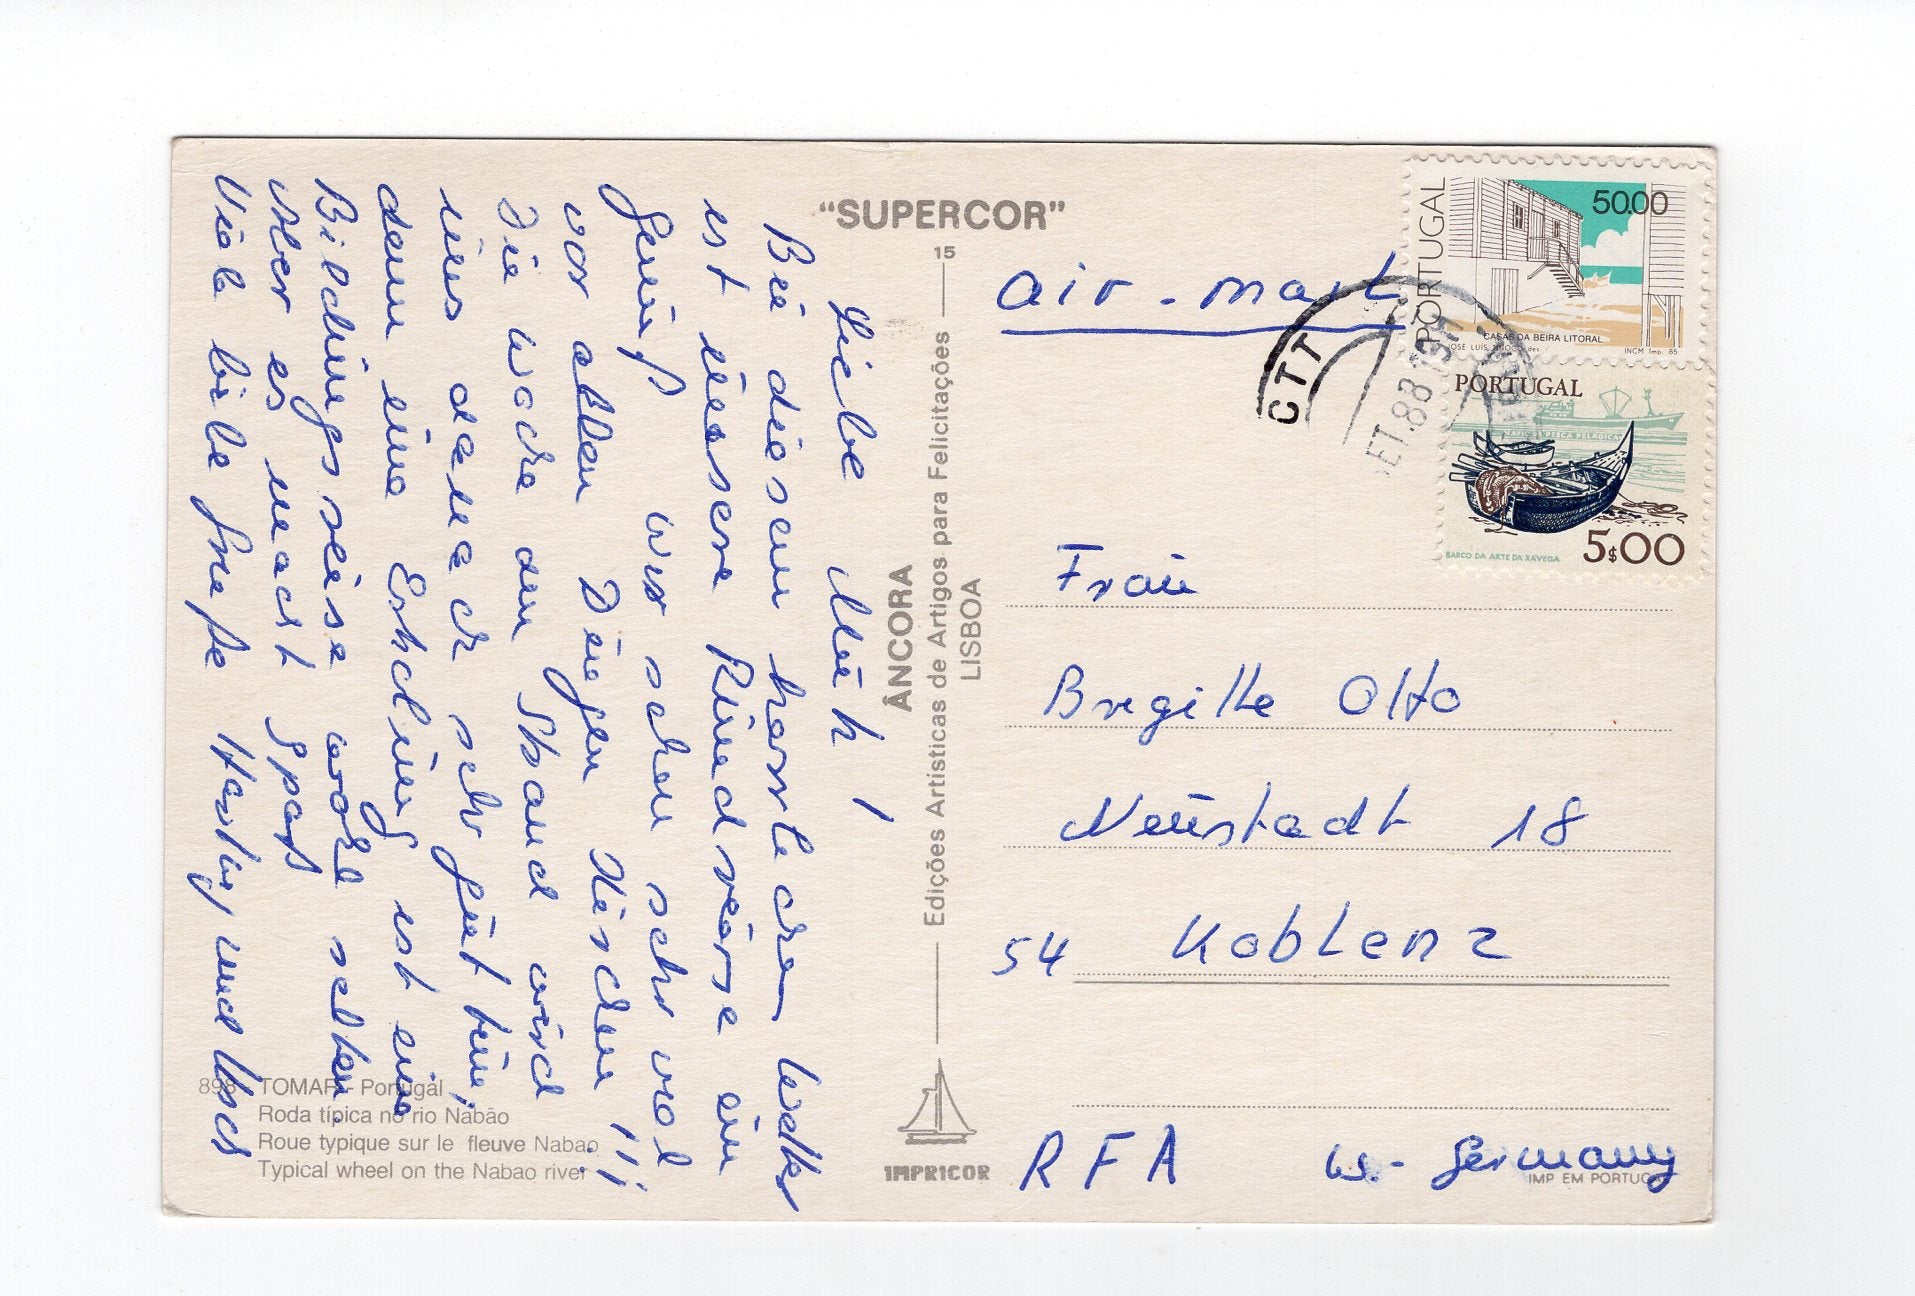 Liebe Müh!
Bei diesem herrlichen Wetter
ist unsere Rundreise ein
Genuß wir sehen sehr viel
vor allem Dingen Kirchen!!!
Die Woche am Strand wird
uns danach sehr gut tun,
denn eine Erholung ist eine
Bildungsreise wohl selten.
Aber es macht Spaß
Viele liebe Grüße Hartwig und Ursel
898 - TOMAR - Portugal
Roda típica no rio Nabão
Roue typique sur le fleuve Nabao
Typical wheel on the Nabao river
"SUPERCOR"
15
ÂNCORA
Edições Artísticas de Artigos para Felicitações
LISBOA
IMPRICOR
air-mail
PORTUGAL
50.00
CASAS DA BEIRA LITORAL
INCM Imp. 85
CTT
ET.88
PORTUGAL
BARCO DA ARTE DA XÁVEGA
5$00
Frau
Bregitte Otto
Neustadt 18
54 Koblenz
RFA W.-Germany
IMP EM PORTUGAL